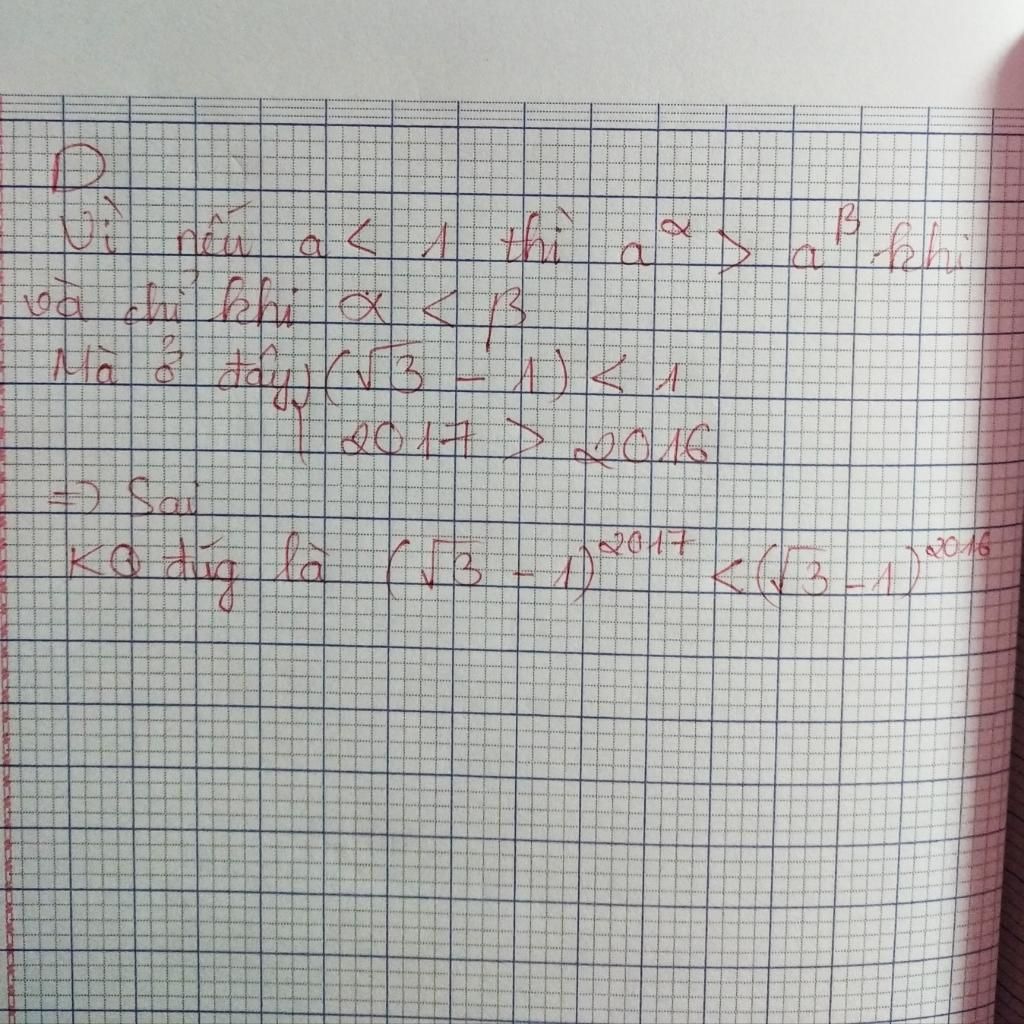 D
Vì nếu a < 1 thì a^α > a^β khi
và chỉ khi α < β
Mà ở đây { (√3 - 1) < 1
2017 > 2016
=> Sai
KQ đúg là (√3 - 1)^2017 < (√3 - 1)^2016